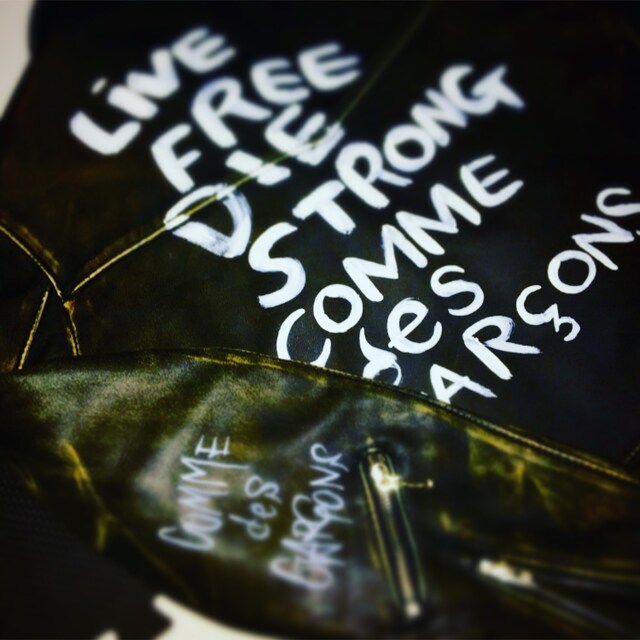 LiVE
FREE
DIE
STRONG
COMME
des
GARÇONS
COMME
des
GARÇONS